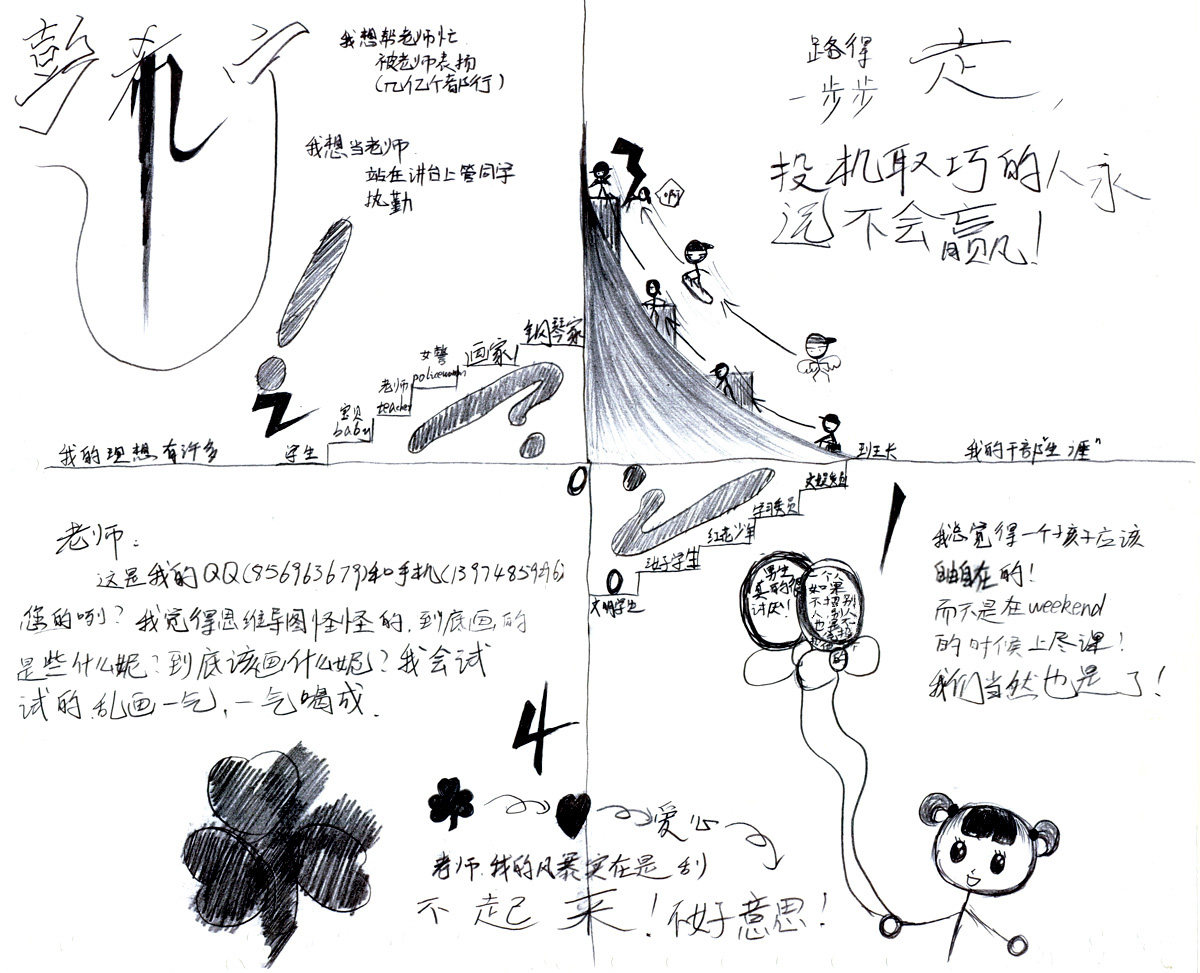 我想帮老师忙
被老师表扬
(几亿个都行)
我想当老师
站在讲台上管同学
执勤
钢琴家
画家
女警
policewoman
老师
teacher
宝贝
baby
学生
我的理想有许多
2
路得
一步步
走,
投机取巧的人永
远不会赢!
3
啊
到班长
我的干部"生涯"
老师:
这是我的QQ(856963679)和手机(13974859496)
您的咧?我觉得思维导图怪怪的,到底画的
是些什么呢?到底该画什么呢?我会试
试的,乱画一气,一气喝成.
4
爱心
老师,我的风暴实在是刮
不起来!不好意思!
文娱委员
学习委员
红花少年
文明学生
1
男生
真的很
讨厌!
我总觉得一个孩子应该
自由自在的!
而不是在weekend
的时候上尽课!
我们当然也是了!